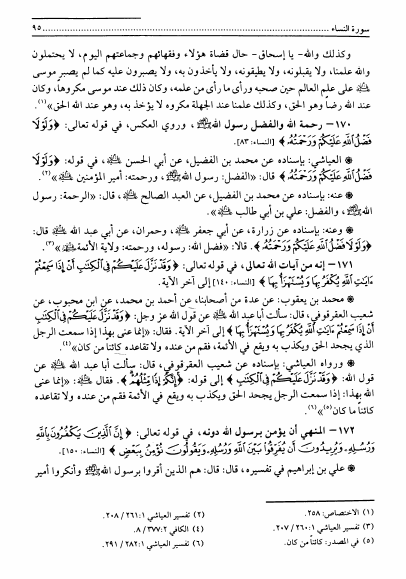 سورة النساء
٩٥
وكذلك والله- يا إسحاق- حال قضاة هؤلاء وفقهائهم وجماعتهم اليوم، لا يحتملون
والله علمنا، ولا يقبلونه، ولا يطيقونه، ولا يأخذون به، ولا يصبرون عليه كما لم يصبر موسى
على علم العالم حين صحبه ورأى ما رأى من علمه، وكان ذلك عند موسى مكروها، وكان
عند الله رضاً وهو الحق، وكذلك علمنا عند الجهلة مكروه لا يؤخذ به، وهو عند الله الحق»(١).
١٧٠- رحمة الله والفضل رسول الله ﷺ، وروي العكس، في قوله تعالى: ﴿وَلَوْلَا
فَضْلُ ٱللَّهِ عَلَيْكُمْ وَرَحْمَتُهُ﴾ [النساء: ٨٣].
العياشي: بإسناده عن محمد بن الفضيل، عن أبي الحسن، في قوله: ﴿وَلَوْلَا
فَضْلُ ٱللَّهِ عَلَيْكُمْ وَرَحْمَتُهُ﴾ قال: «الفضل: رسول الله ﷺ، ورحمته: أمير المؤمنين»(٢).
عنه: بإسناده عن محمد بن الفضيل، عن العبد الصالح، قال: «الرحمة: رسول
الله ﷺ، والفضل: علي بن أبي طالب».
وعنه: بإسناده عن زرارة، عن أبي جعفر، وحمران، عن أبي عبد الله قال:
﴿وَلَوْلَا فَضْلُ ٱللَّهِ عَلَيْكُمْ وَرَحْمَتُهُ﴾. قالا: «فضل الله: رسوله، ورحمته: ولاية الأئمة»(٣).
١٧١- إنه من آيات الله تعالى، في قوله تعالى: ﴿وَقَدْ نَزَّلَ عَلَيْكُمْ فِى ٱلْكِتَٰبِ أَنْ إِذَا سَمِعْتُمْ
ءَايَٰتِ ٱللَّهِ يُكْفَرُ بِهَا وَيُسْتَهْزَأُ بِهَا﴾ [النساء: ١٤٠] إلى آخر الآية.
محمد بن يعقوب: عن عدة من أصحابنا، عن أحمد بن محمد، عن ابن محبوب، عن
شعيب العقرقوفي، قال: سألت أبا عبد الله عن قول الله عز وجل: ﴿وَقَدْ نَزَّلَ عَلَيْكُمْ فِى ٱلْكِتَٰبِ
أَنْ إِذَا سَمِعْتُمْ ءَايَٰتِ ٱللَّهِ يُكْفَرُ بِهَا وَيُسْتَهْزَأُ بِهَا﴾ إلى آخر الآية. فقال: «إنما عنى بهذا إذا سمعت الرجل
الذي يجحد الحق ويكذب به ويقع في الأئمة، فقم من عنده ولا تقاعده كائناً من كان»(٤).
ورواه العياشي: بإسناده عن شعيب العقرقوفي، قال: سألت أبا عبد الله عن
قول الله: ﴿وَقَدْ نَزَّلَ عَلَيْكُمْ فِى ٱلْكِتَٰبِ﴾ إلى قوله: ﴿إِنَّكُمْ إِذًا مِّثْلُهُمْ﴾. فقال: «إنما عنى
الله بهذا: إذا سمعت الرجل يجحد الحق ويكذب به ويقع في الأئمة فقم من عنده ولا تقاعده
كائناً ما كان(٥)»(٦).
١٧٢- المنهي أن يؤمن برسول الله دونه، في قوله تعالى: ﴿إِنَّ ٱلَّذِينَ يَكْفُرُونَ بِٱللَّهِ
وَرُسُلِهِ وَيُرِيدُونَ أَن يُفَرِّقُوا بَيْنَ ٱللَّهِ وَرُسُلِهِ وَيَقُولُونَ نُؤْمِنُ بِبَعْضٍ﴾ [النساء: ١٥٠].
علي بن إبراهيم في تفسيره، قال: قال: هم الذين أقروا برسول الله ﷺ وأنكروا أمير
(١) الاختصاص: ٢٥٨.
(٢) تفسير العياشي ١: ٢٦١/ ٢٠٨.
(٣) تفسير العياشي ١: ٢٦٠/ ٢٠٧.
(٤) الكافي ٢: ٣٧٧/ ٨.
(٥) في المصدر: كائناً من كان.
(٦) تفسير العياشي ١: ٢٨٢/ ٢٩١.